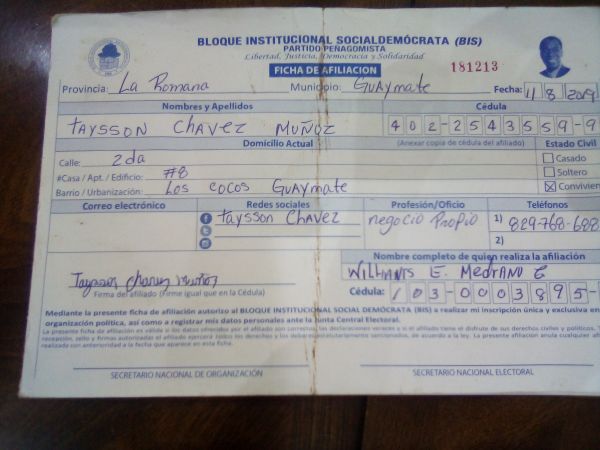 BLOQUE INSTITUCIONAL SOCIALDEMÓCRATA (BIS)
PARTIDO PEÑAGOMISTA
Libertad, Justicia, Democracia y Solidaridad
FICHA DE AFILIACION
181213
Provincia: La Romana Municipio: Guaymate Fecha: 11/8/2019
Nombres y Apellidos Cédula
TAYSSON CHAVEZ MUÑOZ 402-2543559-9
Domicilio Actual (Anexar copia de cédula del afiliado) Estado Civil
Calle: 2da Casado
#Casa / Apt. / Edificio: #8 Soltero
Barrio / Urbanización: Los cocos Guaymate Convivien
Correo electrónico Redes sociales Profesión/Oficio Teléfonos
Taysson Chavez negocio Propio 1) 829-768-688
2)
Nombre completo de quien realiza la afiliación
Willians E. Medrano G
Taysson Chavez Muñoz
Firma del afiliado (Firme igual que en la Cédula) Cédula: 103-0003895-
Mediante la presente ficha de afiliación autorizo al BLOQUE INSTITUCIONAL SOCIAL DEMÓCRATA (BIS) a realizar mi inscripción única y exclusiva en
organización política, así como a registrar mis datos personales ante la Junta Central Electoral.
La presente ficha de afiliación es válida si los datos ofrecidos por el afiliado son correctos, las declaraciones veraces y si el afiliado tiene el disfrute de sus derechos civiles y políticos.
recepción, sello y firmas autorizadas el afiliado ejercerá todos los derechos y los deberes estatutariamente sancionados, de acuerdo a la ley. La presente afiliación anula cualquier
realizada con anterioridad a la fecha que aparece en esta ficha.
SECRETARIO NACIONAL DE ORGANIZACIÓN SECRETARIO NACIONAL ELECTORAL